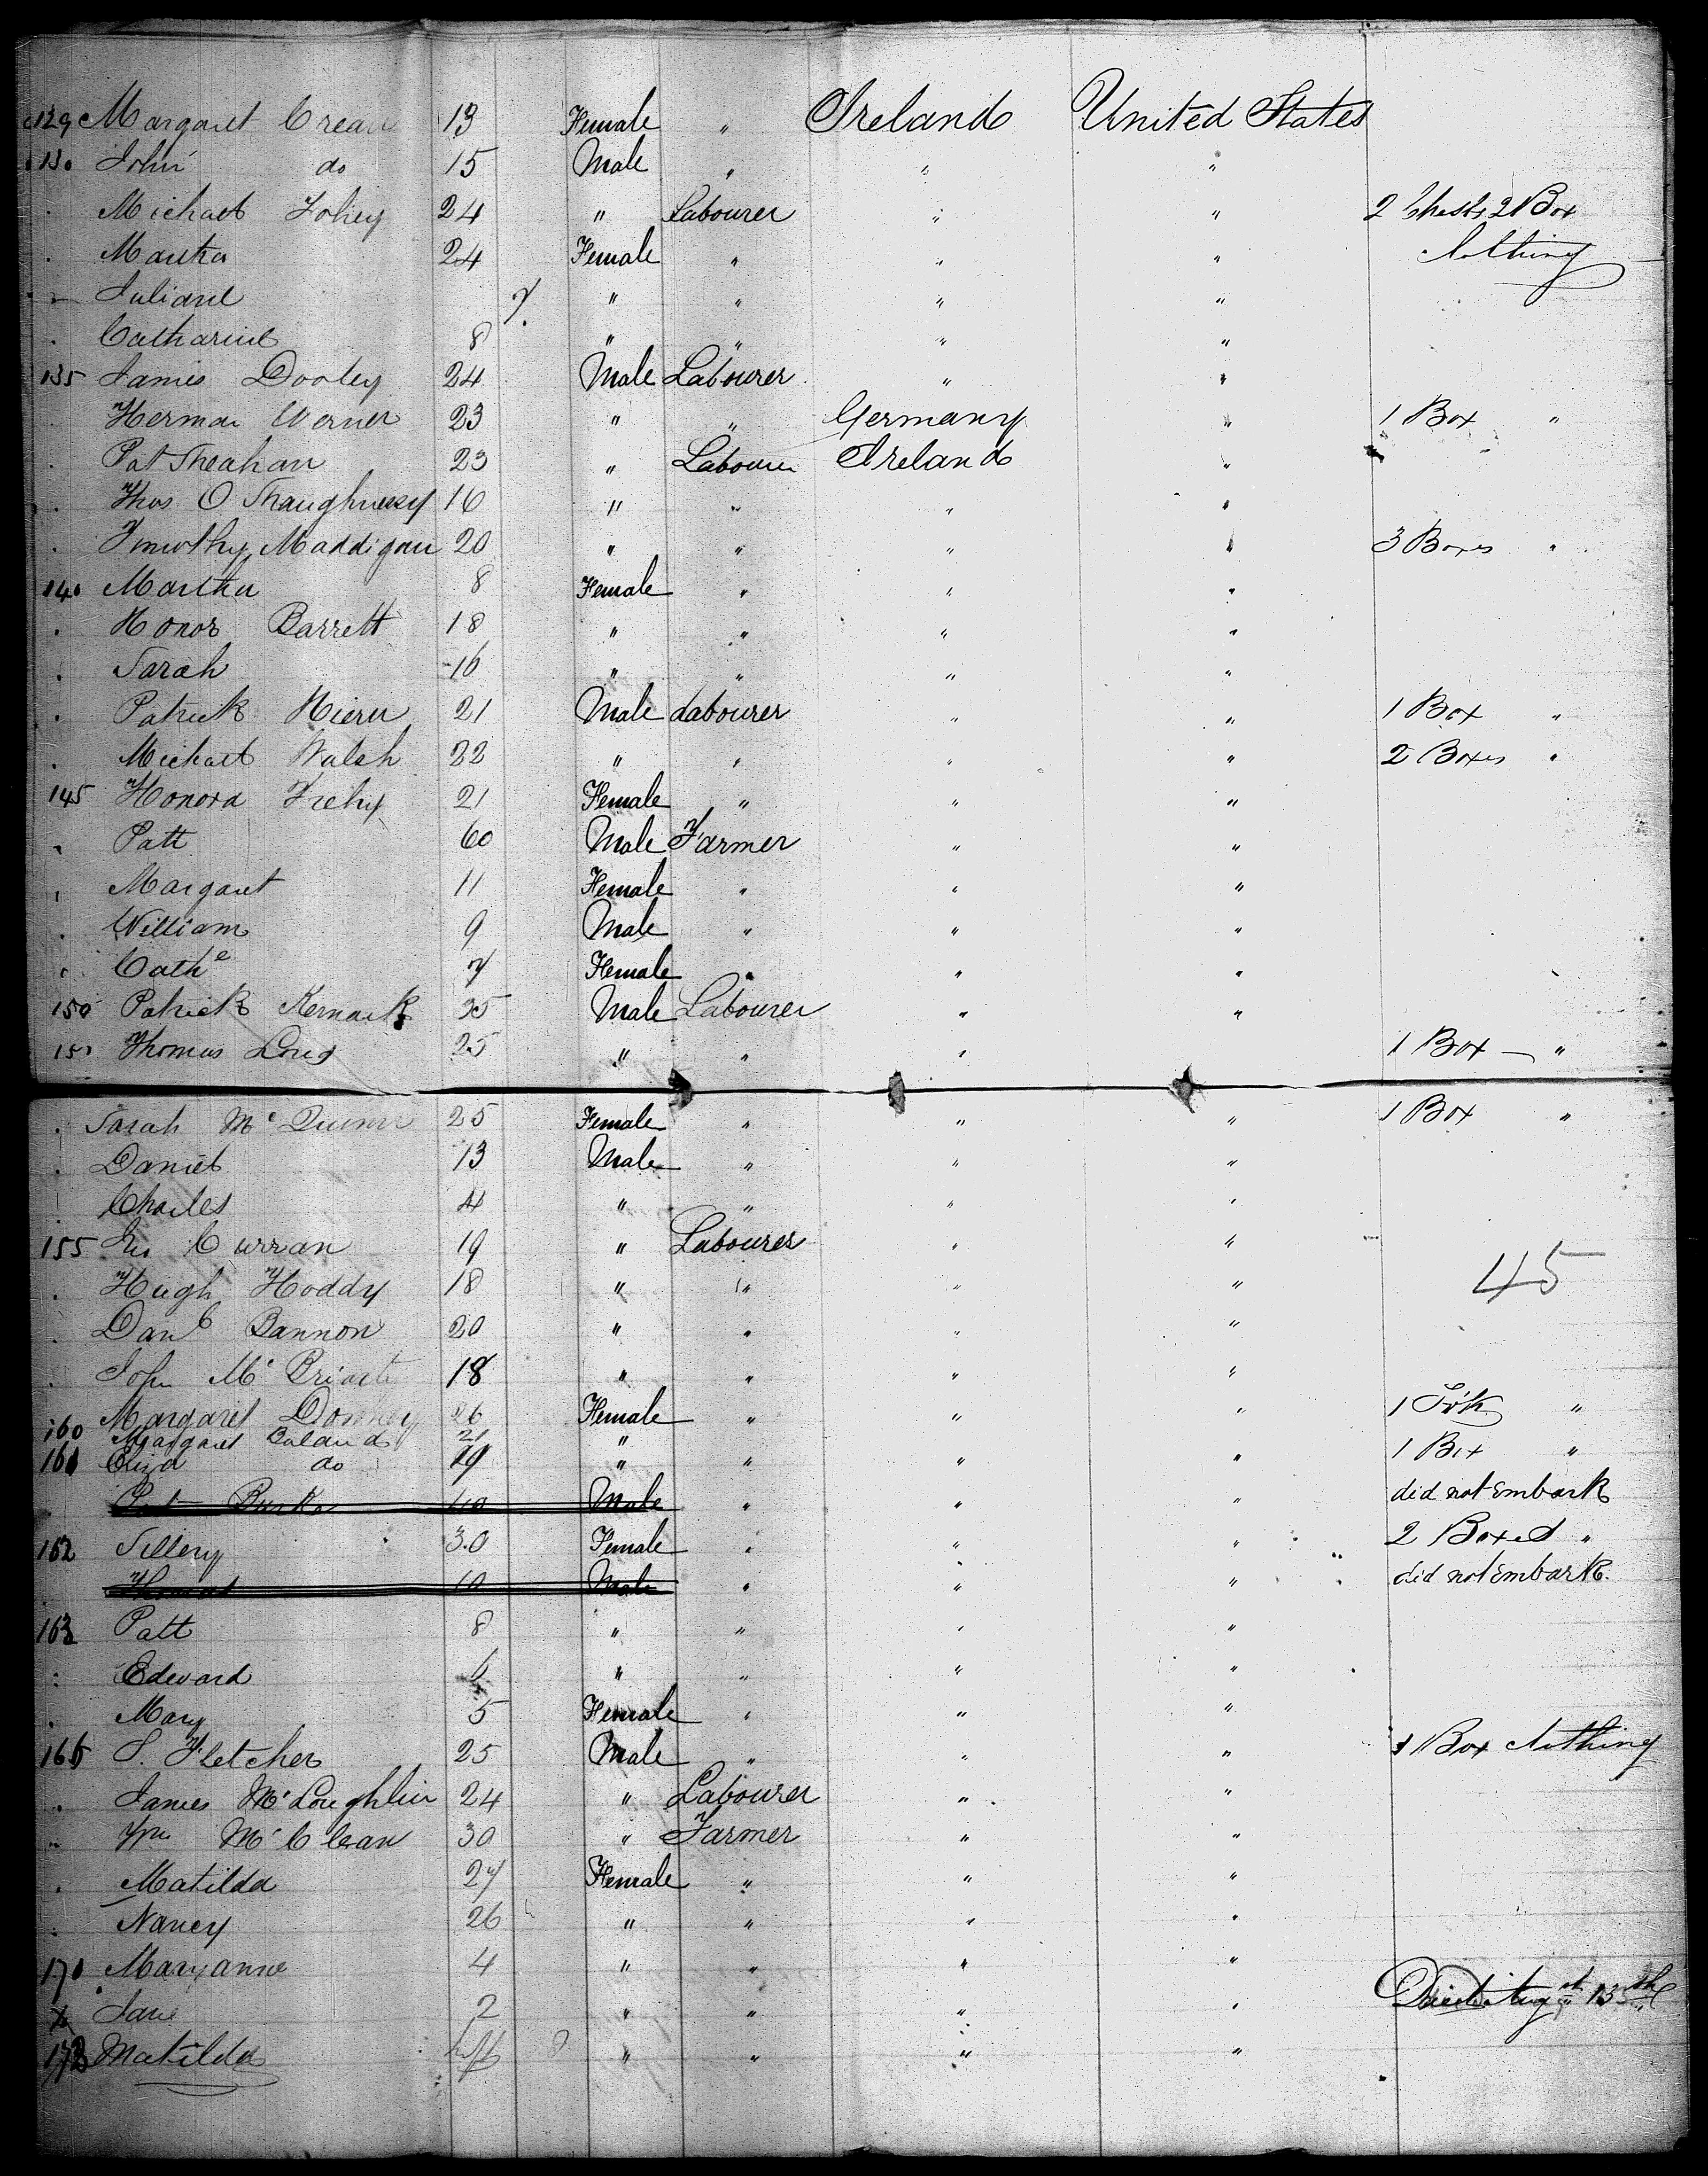 129 Margaret Crean 13 Female " Ireland United States
130 John do 15 Male " " "
. Michael Fohey 24 " Labourer " " 2 Chests 2 Box
. Martha 24 Female " " " Nothing
Juliane 7 " " " "
. Catharine 8 " " " "
135 James Dooley 24 Male Labourer " "
. Herman Werner 23 " " Germany " 1 Box "
. Pat Sheahan 23 " Labourer Ireland "
. Thos O Shaughnessy 16 " " " "
. Timothy Maddigan 20 " " " " 3 Boxes "
140 Martha 8 Female " " "
. Honor Barrett 18 " " " "
. Sarah 16 " " " "
. Patrick Hiern 21 Male Labourer " " 1 Box "
. Michael Walsh 22 " " " " 2 Boxes "
145 Honora Frehy 21 Female " " "
. Patt 60 Male Farmer " "
. Margaret 11 Female " " "
. William 9 Male " " "
. Cathe 7 Female " " "
150 Patrick Kernark 25 Male Labourer " "
151 Thomas Long 25 " " " " 1 Box — "
. Sarah Mc Quinn 25 Female " " " 1 Box "
. Daniel 13 Male " " "
. Charles 4 " " " "
155 Curran 19 " Labourer " "
45
. Hugh Hoddy 18 " " " "
. Danl Bannon 20 " " " "
. John Mc 18 " " " "
Margaret 26 Female " " " 1 "
160 Margaret Boland 21 "
161 Eliza do 19 " " " " 1 Box "
Burke 40 Male " " " did not Embark
162 30 Female " " " 2 Boxes "
Thomas 10 Male " " " did not Embark.
163 Patt 8 " " " "
. Edward 6 " " " "
. Mary 5 Female " " "
166 S. Fletcher 25 Male " " " 1 Box Nothing
" James Mc Loughlin 24 " Labourer " "
" Wm Mc Clean 30 " Farmer " "
. Matilda 27 Female " " "
. Nancy 26 " " " "
170 Maryanne 4 " " " "
Jane 2 " " " " 13th
172 Matilda " " " "